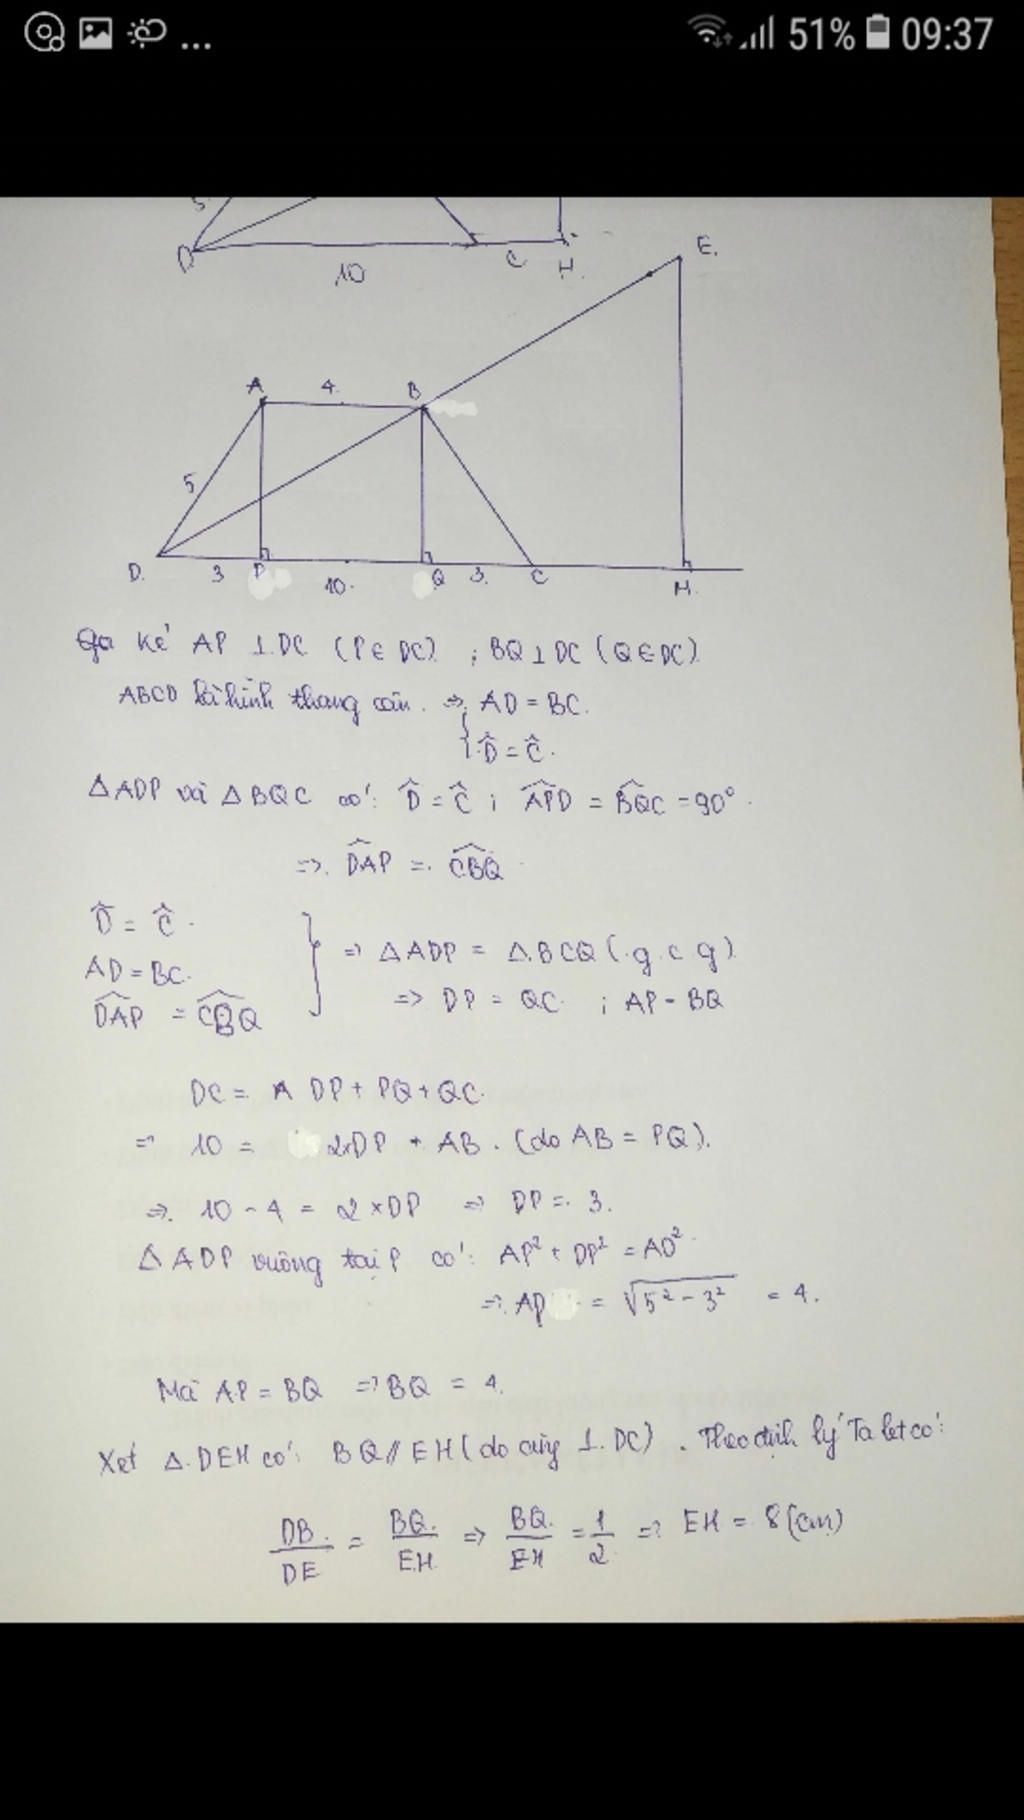 ... 51% 09:37
5
D 10 C H.
E.
A 4. B
5
D. 3 P 10. Q 3. C H.
kẻ AP ⊥ DC (P ∈ DC) ; BQ ⊥ DC (Q ∈ DC)
ABCD là hình thang cân. ⇒ { AD = BC.
D̂ = Ĉ.
ΔADP và ΔBQC có: D̂ = Ĉ ; \widehat{APD} = \widehat{BQC} = 90°.
⇒ \widehat{DAP} = \widehat{CBQ}
D̂ = Ĉ.
AD = BC. } ⇒ ΔADP = ΔBCQ (g.c.g)
\widehat{DAP} = \widehat{CBQ} ⇒ DP = QC ; AP = BQ
DC = A DP + PQ + QC.
⇒ 10 = 2×DP + AB. (do AB = PQ).
⇒ 10 - 4 = 2 × DP ⇒ DP = 3.
ΔADP vuông tại P có: AP² + DP² = AD²
⇒ AP = √(5² - 3²) = 4.
Mà AP = BQ ⇒ BQ = 4.
Xét Δ DEH có: BQ // EH (do cùng ⊥ DC). Theo định lý Ta let có:
DB/DE = BQ/EH ⇒ BQ/EH = 1/2 ⇒ EH = 8 (cm)